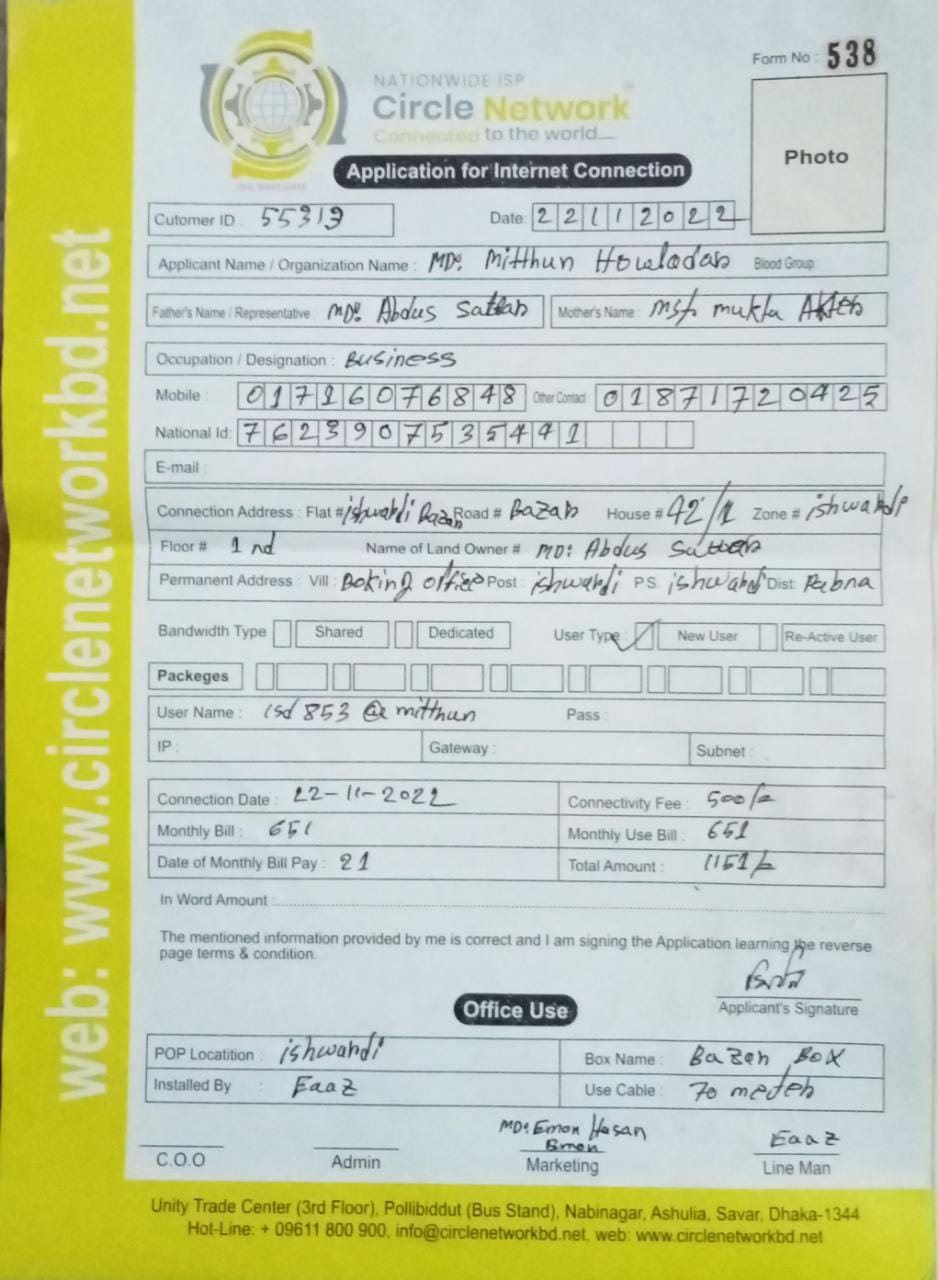 Form No : 538
NATIONWIDE ISP
Circle Network
Connected to the world....
Photo
Application for Internet Connection
Cutomer ID : 55319 Date: 22112022
Applicant Name / Organization Name : MD: Mitthun Howladar Blood Group :
Father's Name / Representative : MD: Abdus Sattar Mother's Name : Mst. mukta Akter
Occupation / Designation : Business
Mobile : 01716076848 Other Contact 01871720425
National Id: 7623907535441
E-mail :
Connection Address : Flat # ishwardi Bazar Road # Bazar House # 42/1 Zone # ishwardi
Floor # 1 nd Name of Land Owner # MD: Abdus Sattar
Permanent Address : Vill : Boking office Post : ishwardi P.S. ishwardi Dist: Pabna
Bandwidth Type Shared Dedicated User Type : New User Re-Active User
Packeges
User Name : isd 853 @ mitthun Pass :
IP : Gateway : Subnet :
Connection Date : 22-11-2022 Connectivity Fee : 500/=
Monthly Bill : 651 Monthly Use Bill : 651
Date of Monthly Bill Pay : 21 Total Amount : 1151/=
In Word Amount :
The mentioned information provided by me is correct and I am signing the Application learning the reverse
page terms & condition.
Applicant's Signature
Office Use
POP Locatition : ishwardi Box Name : Bazar Box
Installed By : Eaaz Use Cable : 70 meter
MD: Emon Hasan
Emon Eaaz
C.O.O Admin Marketing Line Man
Unity Trade Center (3rd Floor), Pollibiddut (Bus Stand), Nabinagar, Ashulia, Savar, Dhaka-1344
Hot-Line: + 09611 800 900, info@circlenetworkbd.net, web: www.circlenetworkbd.net
web: www.circlenetworkbd.net